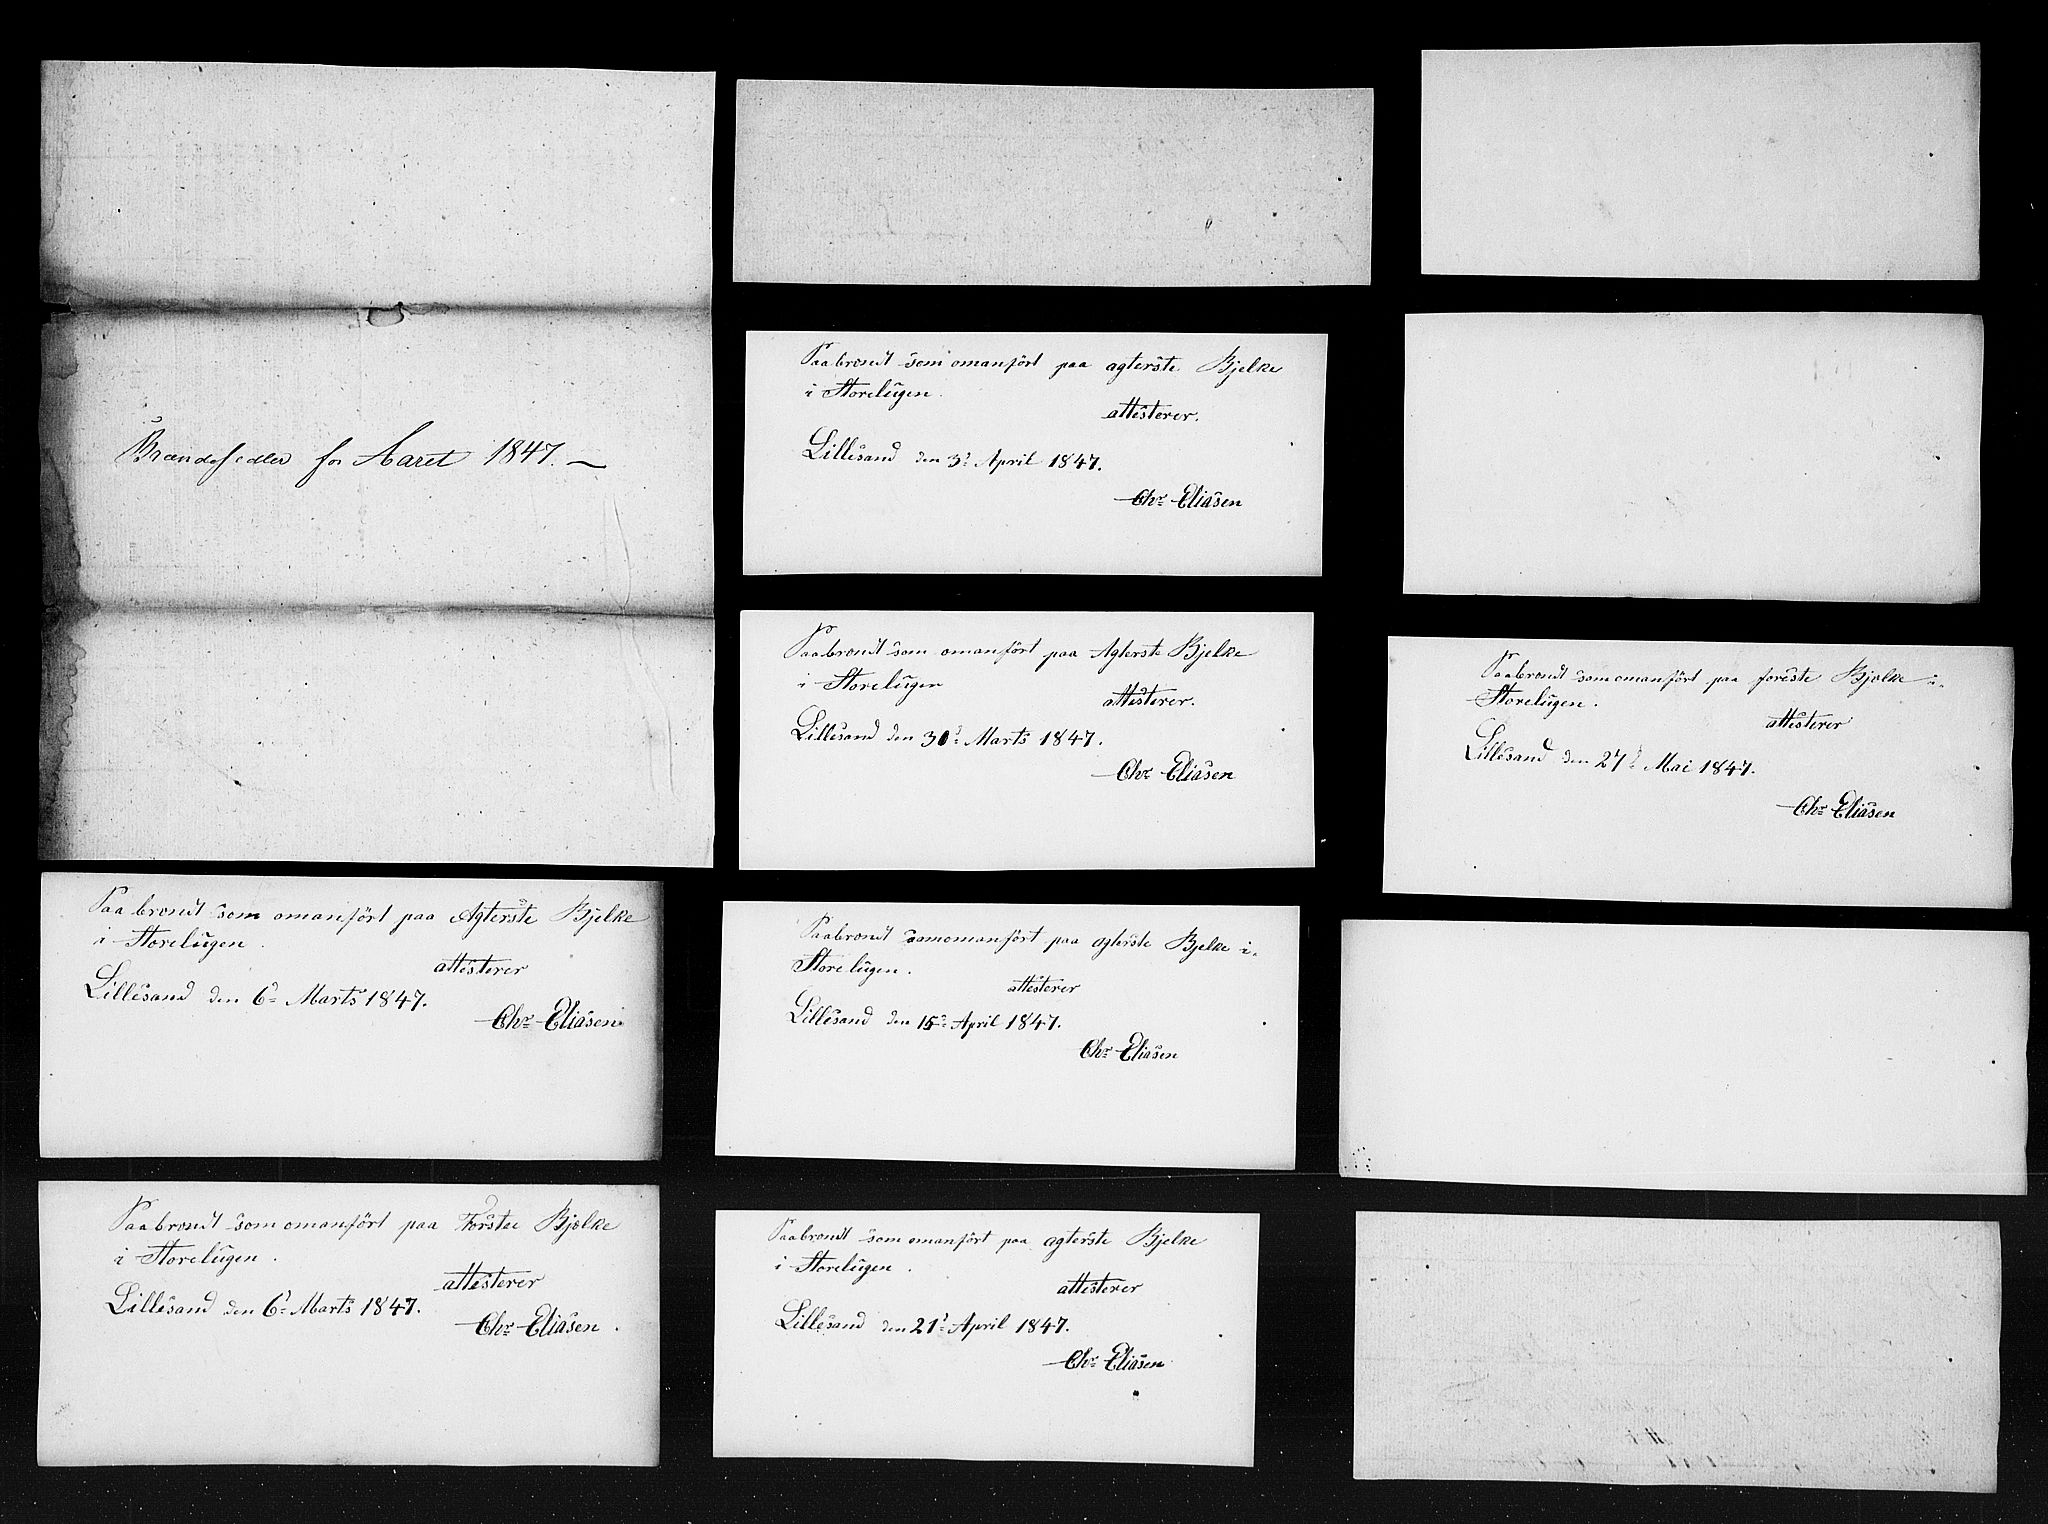 Brændesedler for Aaret 1847. —
Paabrendt som omanført paa Agterste Bjelke
i Storelugen.
attesterer
Lillesand den 6d Marts 1847.
Chr Eliasen
Paabrendt som omanført paa Forste Bjelke
i Storelugen.
attesterer
Lillesand den 6d Marts 1847.
Chr Eliasen.
Paabrendt som omanført paa agterste Bjelke
i Storelugen.
attesterer.
Lillesand den 3d April 1847.
Chr Eliasen
Paabrendt som omanført paa Agterste Bjelke
i Storelugen
attesterer.
Lillesand den 30d Marts 1847.
Chr Eliasen
Paabrendt somomanført paa agterste Bjelke i
Storelugen.
attesterer
Lillesand den 15d April 1847.
Chr Eliasen
Paabrendt som omanført paa agterste Bjelke
i Storelugen.
attesterer
Lillesand den 21d April 1847.
Chr Eliasen
Paabrendt som omanført paa foreste Bjelke i
Storelugen.
attesterer
Lillesand den 27d Mai 1847.
Chr Eliasen